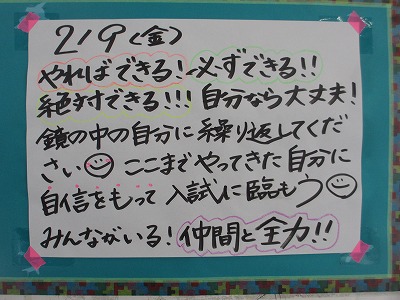 2/9(金)
やればできる!必ずできる!!
絶対できる!!!自分なら大丈夫!
鏡の中の自分に繰り返してくだ
さい ここまでやってきた自分に
自信をもって入試に臨もう
みんながいる!仲間と全力!!